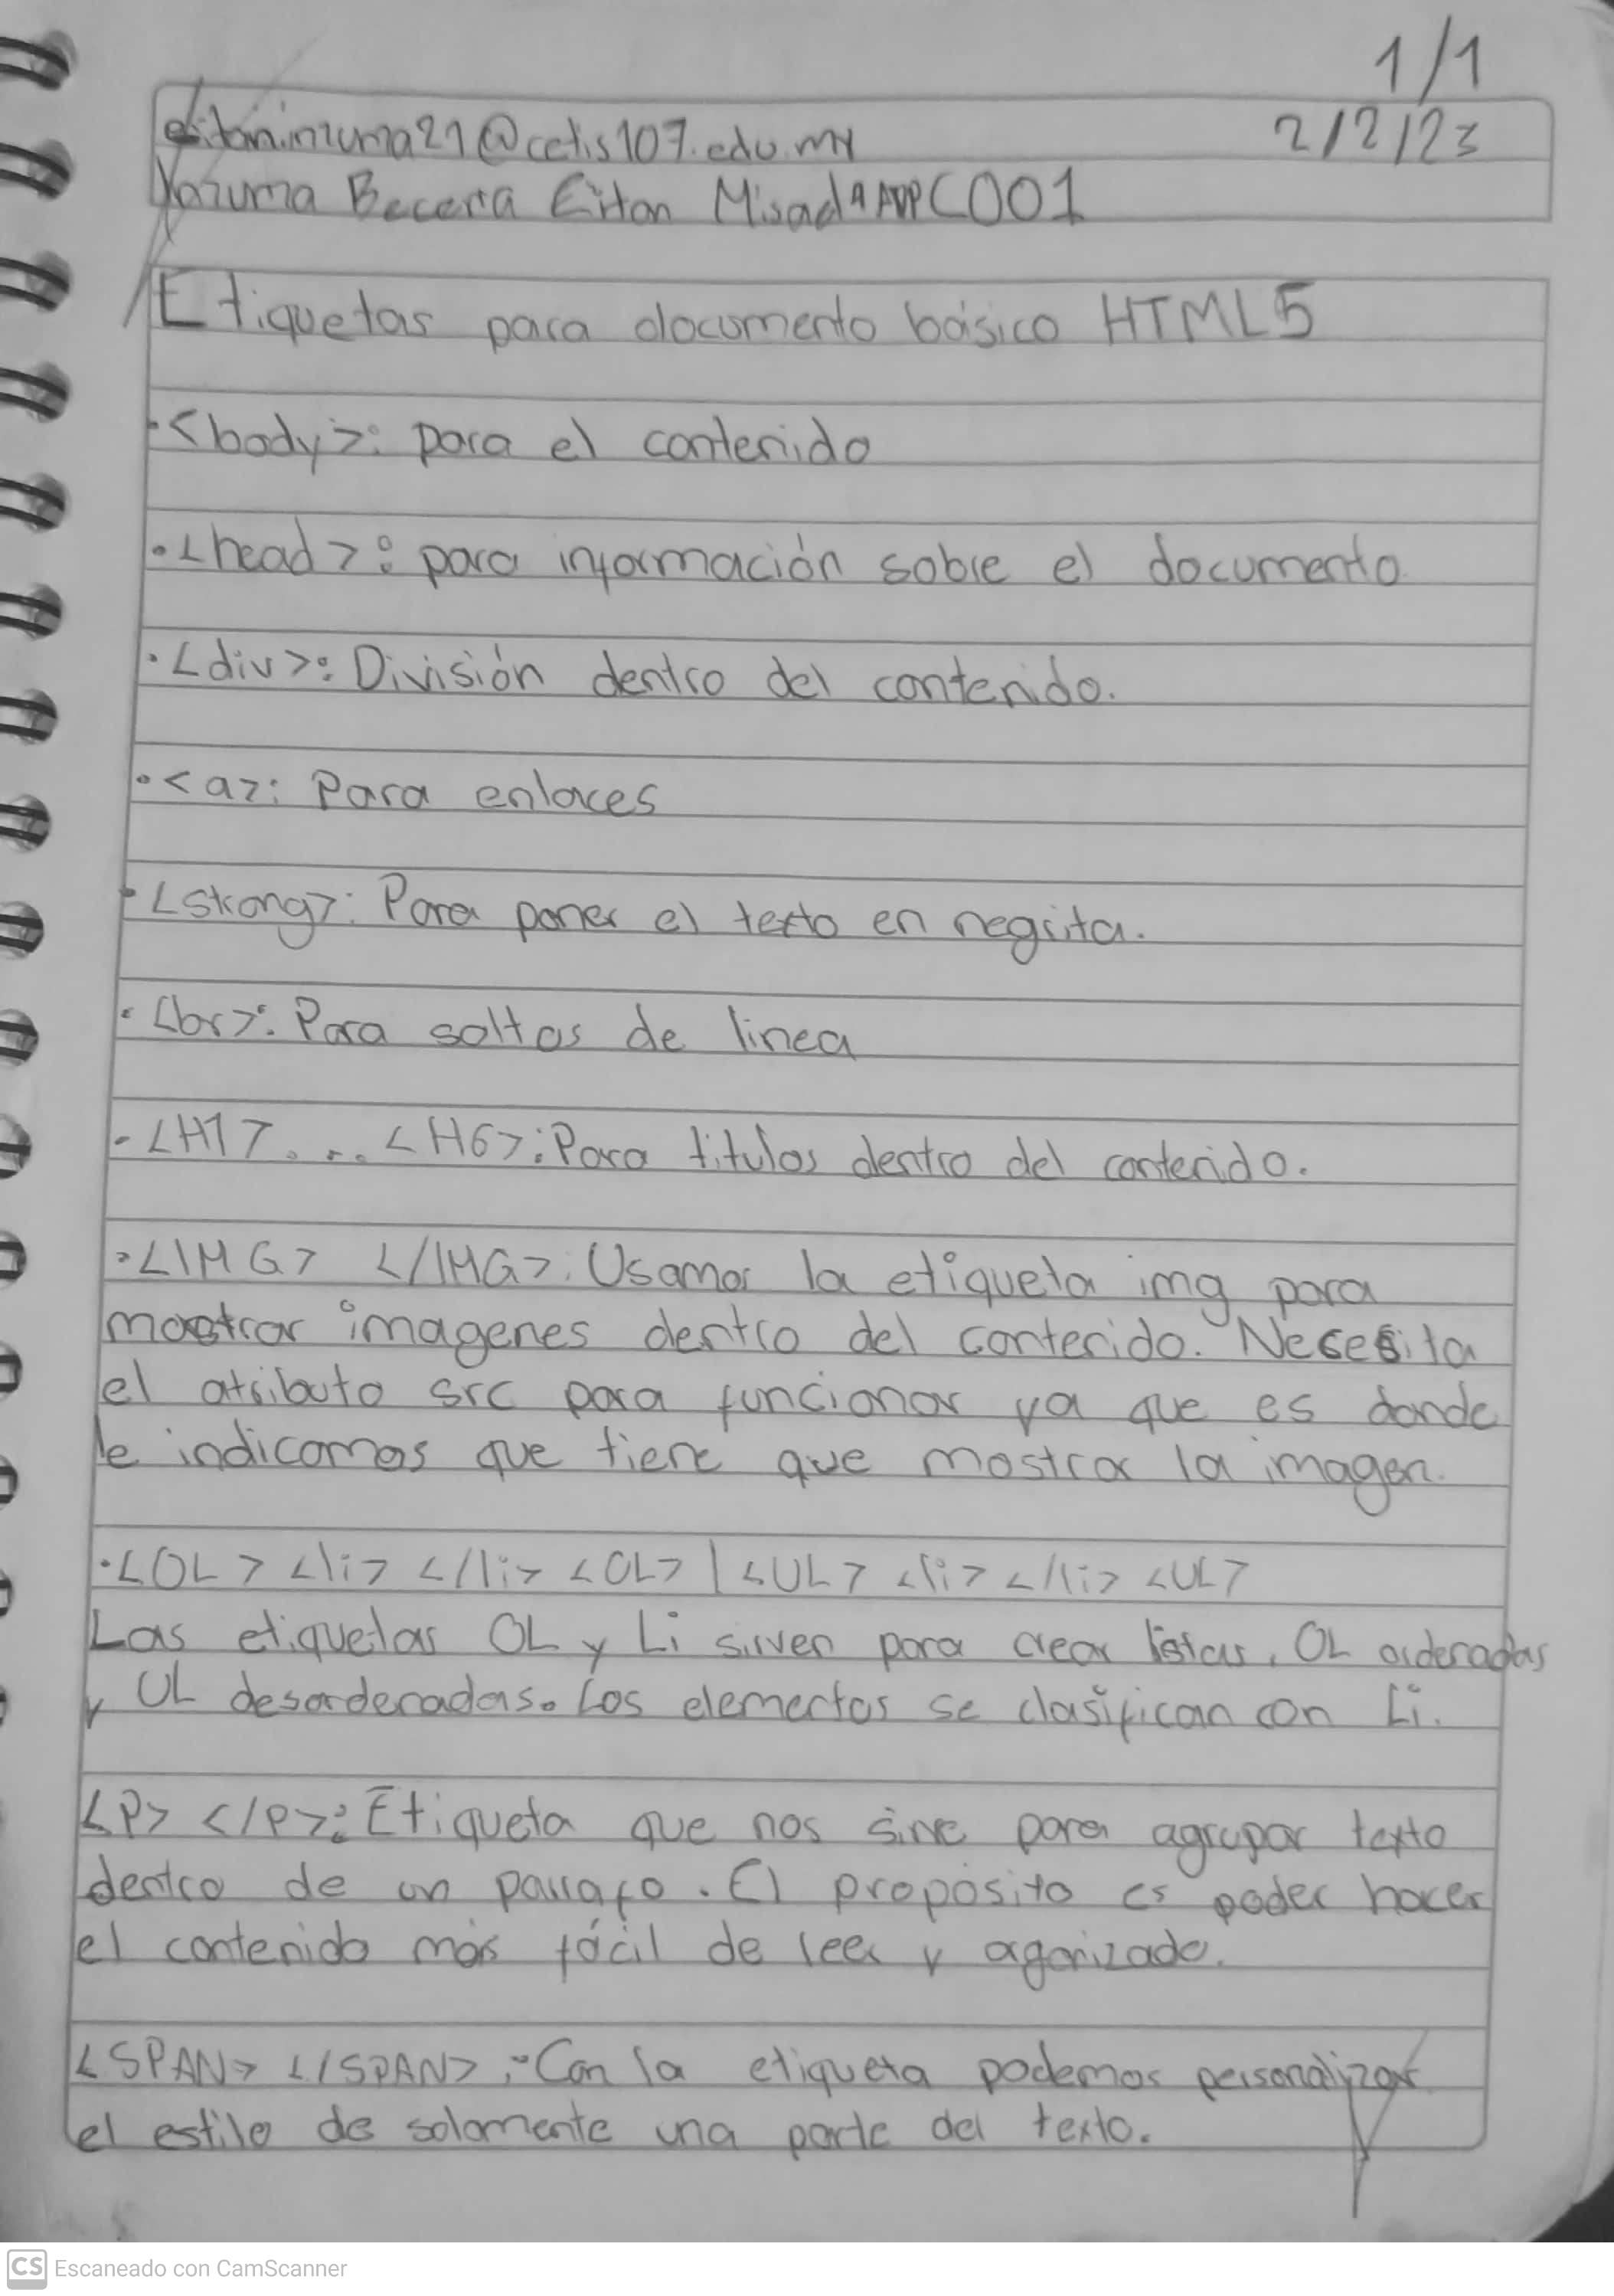 1/1
2/2/23
@cetis107.edu.mx
Becerra Eitan Misad
Etiquetas para documento básico HTML5
·<body>: para el contenido
·<head>: para información sobre el documento
·<div>: División dentro del contenido.
·<a>: Para enlaces
·<strong>: Para poner el texto en negrita.
·<br>: Para saltos de linea
-<H1> ... <H6>: Para titulos dentro del contenido.
·<IMG> </IMG>: Usamos la etiqueta img para
mostrar imagenes dentro del contenido. Necesita
el atributo src para funcionar ya que es donde
le indicamos que tiene que mostrar la imagen.
·<OL> <li> </li> <OL> | <UL> <li> </li> <UL>
Las etiquetas OL y Li sirven para crear listas, OL ordenadas
y UL desordenadas. Los elementos se clasifican con Li.
<P> </P>: Etiqueta que nos sirve para agrupar texto
dentro de un parrafo. El proposito es poder hacer
el contenido más fácil de leer y agorizado.
<SPAN> </SPAN>: Con la etiqueta podemos personalizar
el estilo de solamente una parte del texto.
CS Escaneado con CamScanner